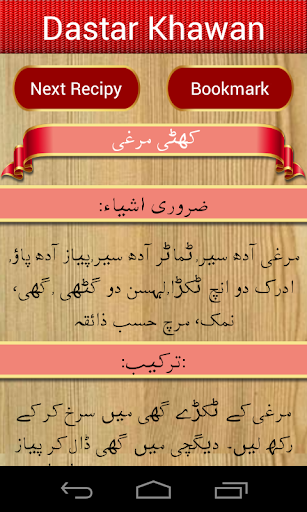 Dastar Khawan
Next Recipy
Bookmark
کھٹی مرغی
ضروری اشیاء:
مرغی آدھ سیر, ٹماٹر آدھ سیر,پیاز آدھ پاؤ,
ادرک دو انچ ٹکڑا,لہسن دو گٹھی ,گھی,
نمک، مرچ حسب ذائقہ
ترکیب:
مرغی کے ٹکڑے گھی میں سرخ کر کے
رکھ لیں۔ دیگچی میں گھی ڈال کر پیاز